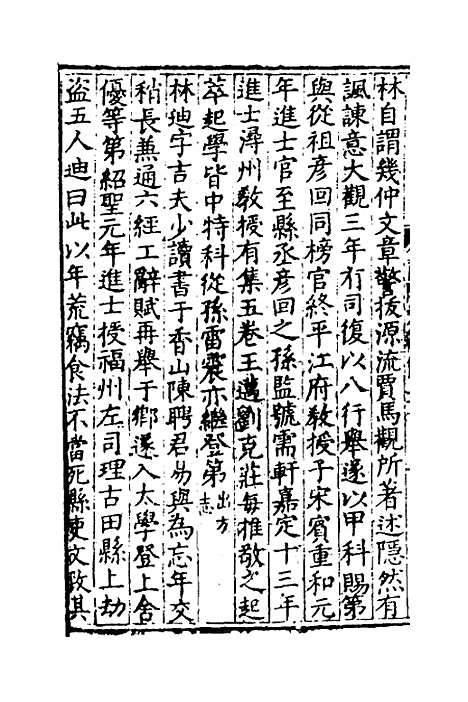 林自謂幾仲文章警拔源流賈馬觀所著述隱然有
諷諫意大觀三年有司復以八行舉遂以甲科賜第
與從祖彥回同榜官終平江府教授子宋賓重和元
年進士官至縣丞彥回之孫監號需軒嘉定十三年
進士潯州教授有集五卷王邁劉克莊每推敬之起
萃起學皆中特科從孫雷震亦繼登第出方志
林廸字吉夫少讀書于香山陳聘君易與為忘年交
稍長兼通六經工辭賦再舉于鄉遂入太學登上舍
優等第紹聖元年進士授福州左司理古田縣上劫
盜五人廸曰此以年荒竊食法不當死縣吏文致其